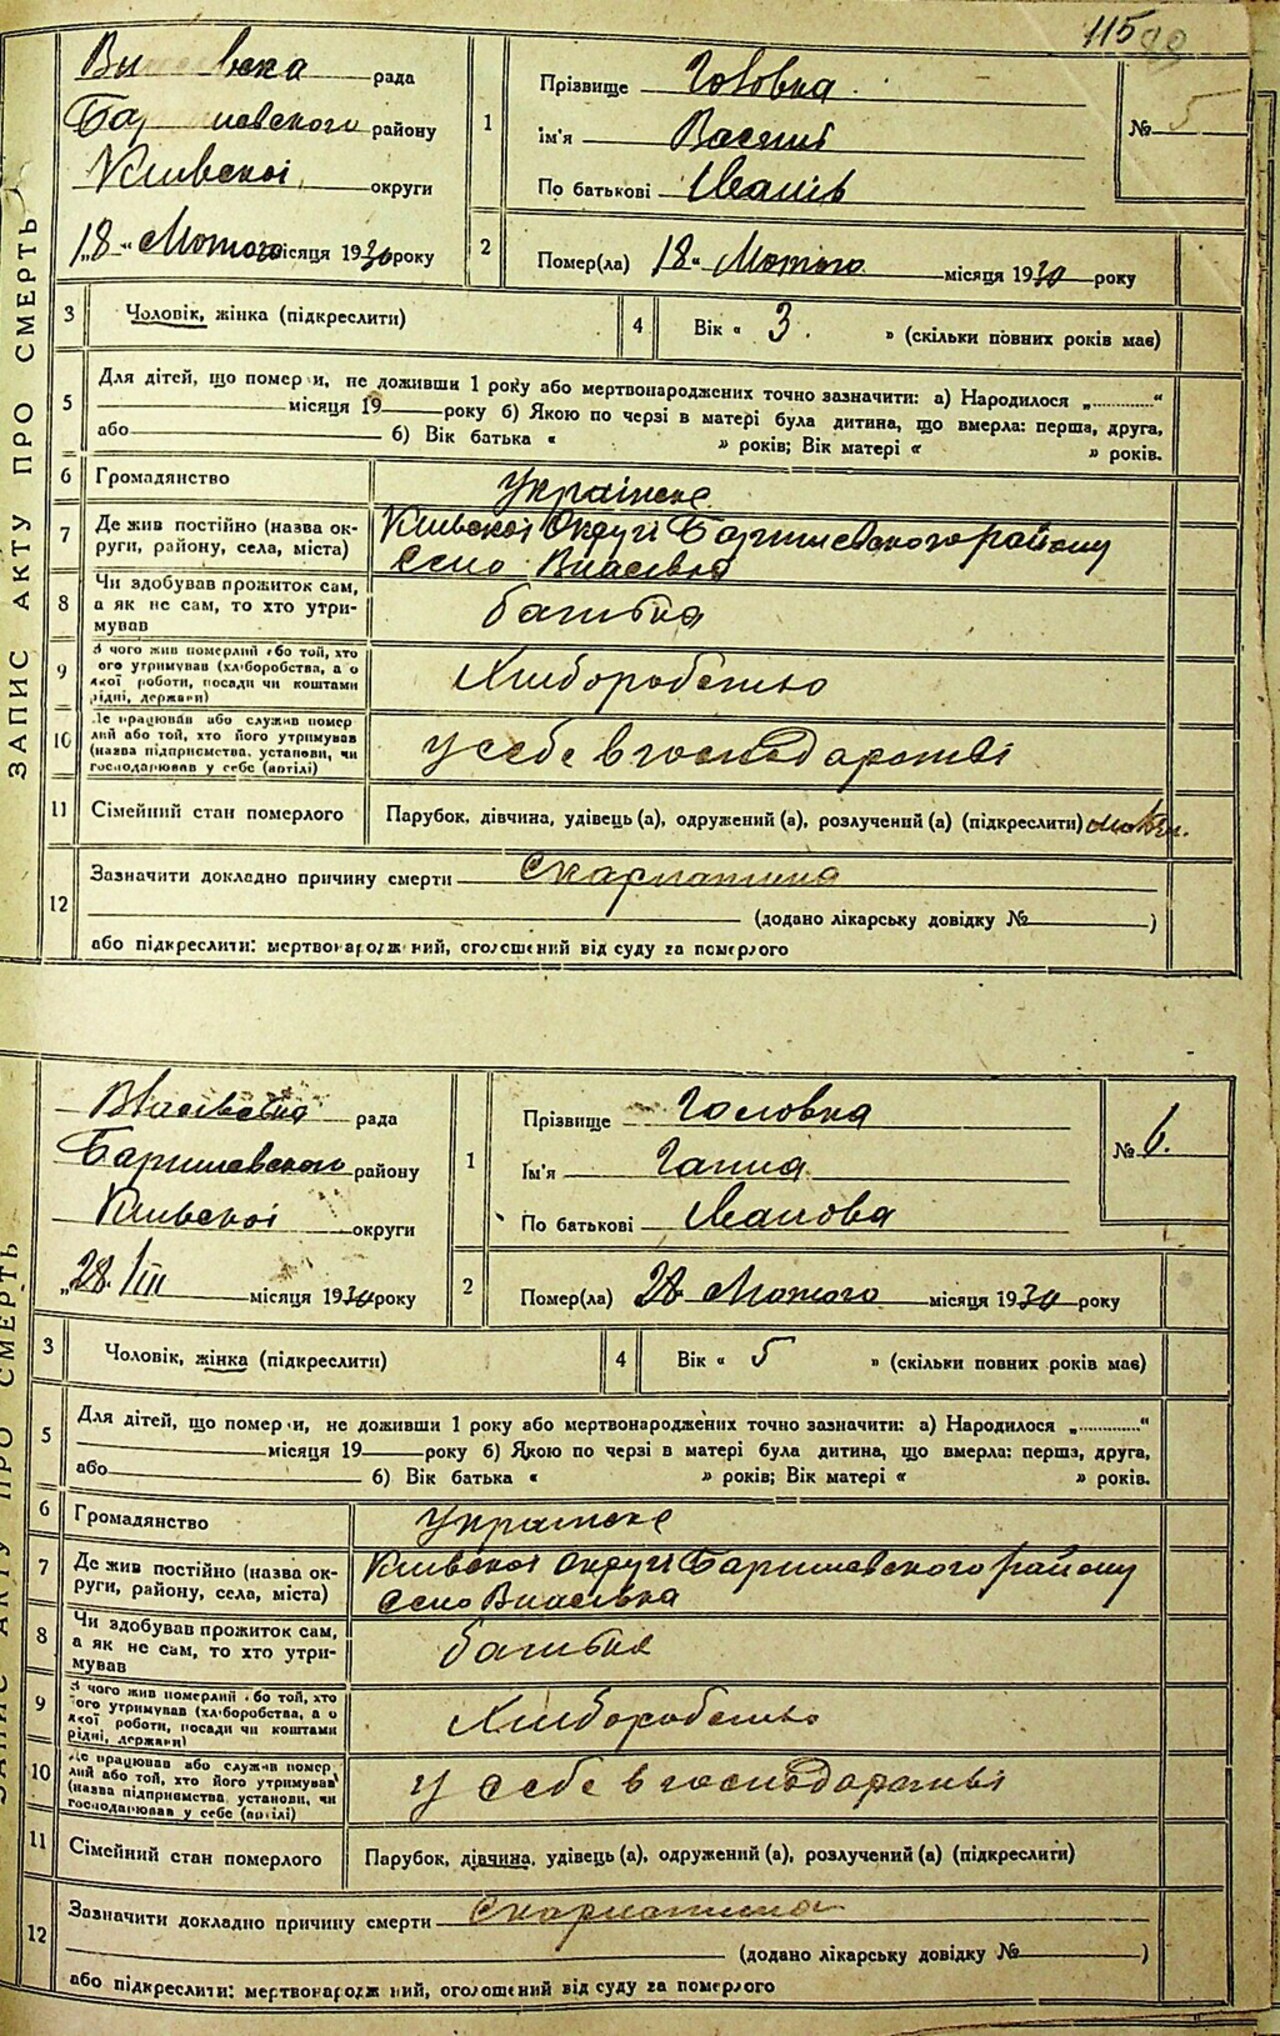 115
ЗАПИС АКТУ ПРО СМЕРТЬ
рада
Баришевского району
Киівскоі округи
„18“ Лютого місяця 1930 року
1
Прізвище Головка
Ім'я Василь
По батькові Іванів
№ 5
2
Помер(ла) 18 „ Лютого місяця 1930 року
3
Чоловік, жінка (підкреслити)
4
Вік « 3. » (скільки повних років має)
5
Для дітей, що померли, не доживши 1 року або мертвонароджених точно зазначити: а) Народилося „ “
місяця 19 року б) Якою по черзі в матері була дитина, що вмерла: перша, друга,
або б) Вік батька « » років; Вік матері « » років.
6
Громадянство Украінске
7
Де жив постійно (назва ок-
руги, району, села, міста)
Киівскоі Округі Баришевского району
Село Власівка
8
Чи здобував прожиток сам,
а як не сам, то хто утри-
мував
батька
9
З чого жив померлий або той, хто
його утримував (хліборобства, а о
якої роботи, посади чи коштами
рідні, держави)
Хлиборобство
10
Де працював або служив помер
лий або той, хто його утримував
(назва підприємства, установи, чи
господарював у себе (артілі)
у себе в господарстві
11
Сімейний стан померлого
Парубок, дівчина, удівець (а), одружений (а), розлучений (а) (підкреслити)
12
Зазначити докладно причину смерти Скарлатина
(додано лікарську довідку № )
або підкреслити: мертвонароджений, оголошений від суду за померлого
ЗАПИС АКТУ ПРО СМЕРТЬ
рада
Баришевского району
Киівскоі округи
„28. III місяця 1930 року
1
Прізвище Головка
Ім'я Ганна
По батькові Іванова
№ 6.
2
Помер(ла) 28 Лютого місяця 1930 року
3
Чоловік, жінка (підкреслити)
4
Вік « 5 » (скільки повних років має)
5
Для дітей, що померли, не доживши 1 року або мертвонароджених точно зазначити: а) Народилося „ “
місяця 19 року б) Якою по черзі в матері була дитина, що вмерла: перша, друга,
або б) Вік батька « » років; Вік матері « » років.
6
Громадянство Украінске
7
Де жив постійно (назва ок-
руги, району, села, міста)
Киівскоі Округі Баришевского району
Село Власівка
8
Чи здобував прожиток сам,
а як не сам, то хто утри-
мував
батька
9
З чого жив померлий або той, хто
його утримував (хліборобства, а о
якої роботи, посади чи коштами
рідні, держави)
Хлиборобство
10
Де працював або служив помер
лий або той, хто його утримував
(назва підприємства установи, чи
господарював у себе (артілі)
у себе в господарстві
11
Сімейний стан померлого
Парубок, дівчина, удівець (а), одружений (а), розлучений (а) (підкреслити)
12
Зазначити докладно причину смерти Скарлатина
(додано лікарську довідку № )
або підкреслити: мертвонароджений, оголошений від суду за померлого